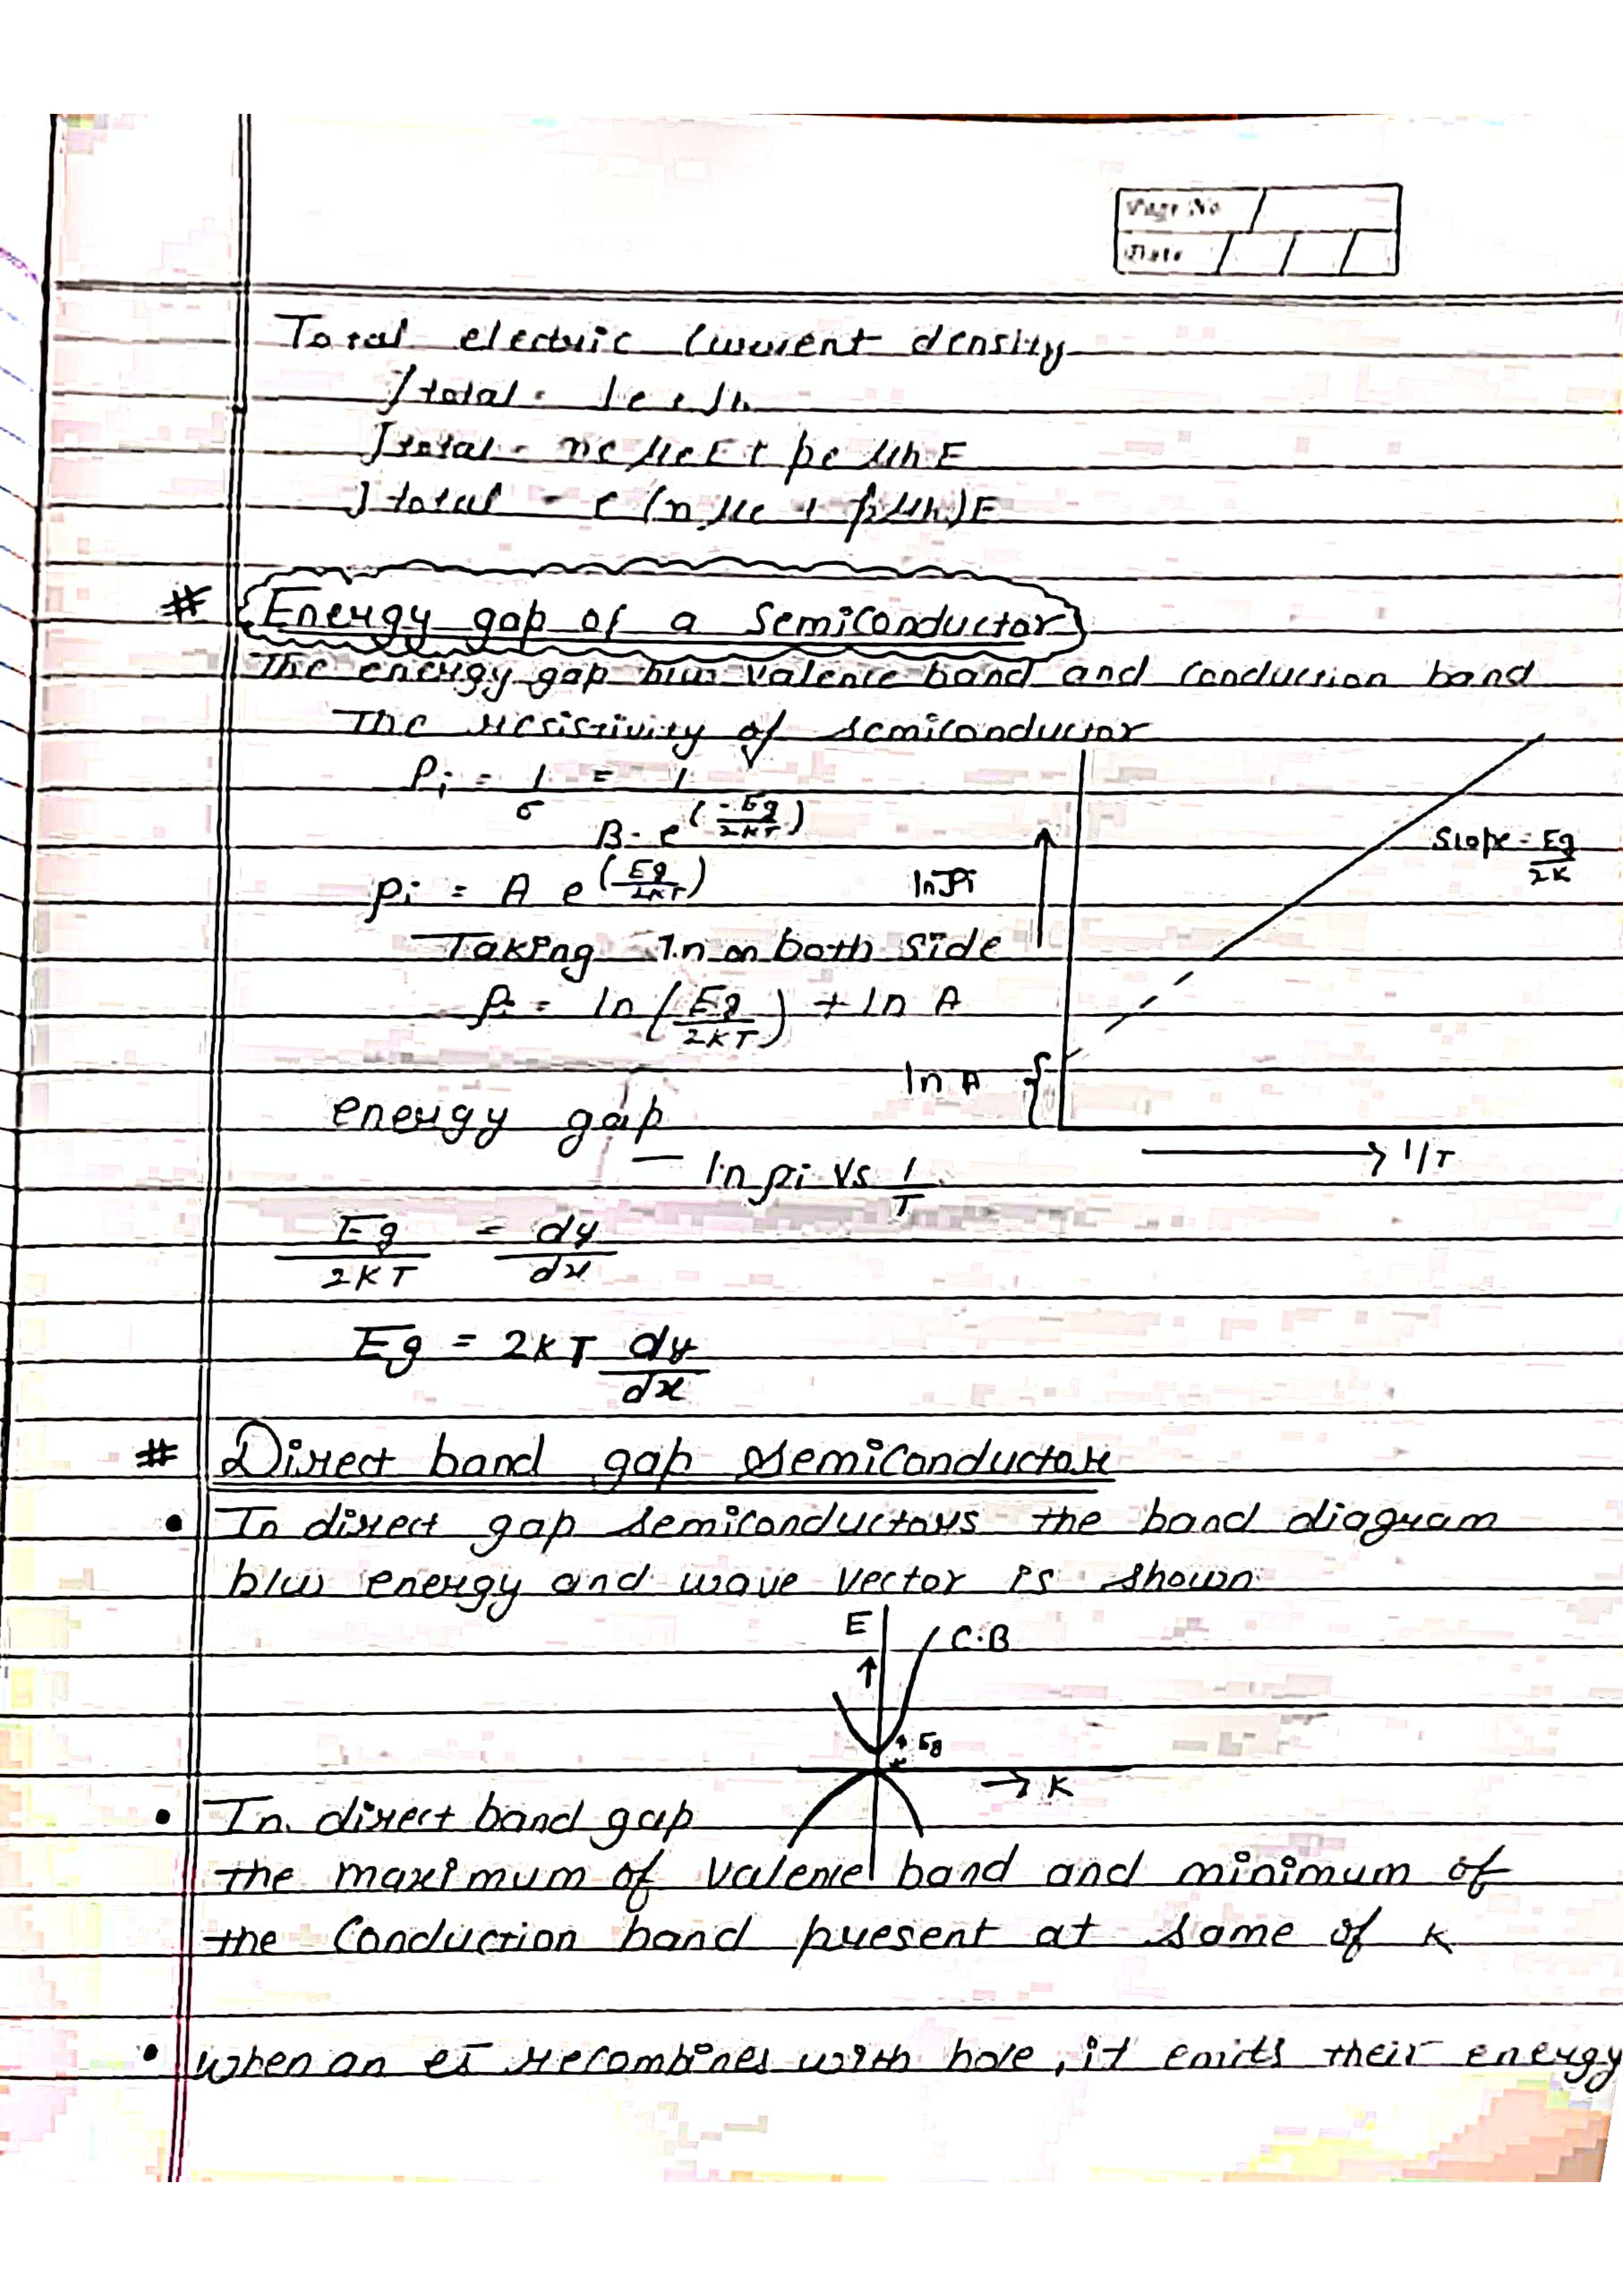 Page No.
Date
Total electric Current density
Jtotal = Je + Jh
Jtotal = ne μe E + pe μh E
Jtotal = e (n μe + p μh) E
# Energy gap of a Semiconductor
The energy gap b/w valence band and conduction band
The resistivity of semiconductor
ρi = 1/σ = 1/(B. e^(-Eg/2KT))
ρi = A e^(Eg/2KT)
Taking ln on both side
ρi = ln (Eg/2KT) + ln A
ln ρi
Slope = Eg/2K
ln A
→ 1/T
energy gap
— ln ρi vs 1/T
Eg/2KT = dy/dx
Eg = 2KT dy/dx
# Direct band gap semiconductor
• In direct gap semiconductors the band diagram
b/w energy and wave vector is shown
E
C.B
Eg
→ K
• In direct band gap
the maximum of valence band and minimum of
the Conduction band present at same of K
• When an e⁻s recombines with hole, it emits their energy